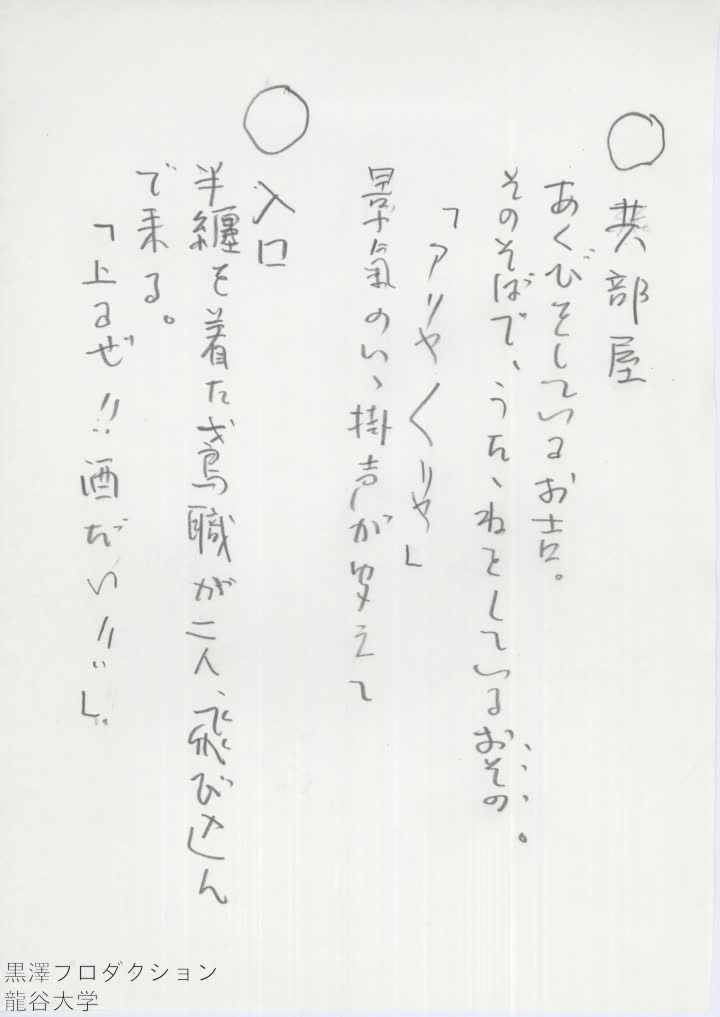 ○ 共部屋
あくびをしているお吉。
そのそばで、うたゝねをしているおその。
「アリャ〱リャ」
景氣のいゝ掛声が聞えて
○ 入口
半纏を着た鳶職が二人、飛び込ん
で来る。
「上るぜ!!酒だい!!」。
黒澤プロダクション
龍谷大学